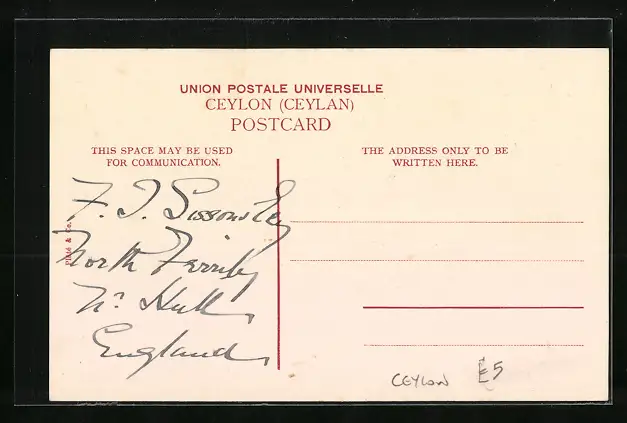 UNION POSTALE UNIVERSELLE
CEYLON (CEYLAN)
POSTCARD
THIS SPACE MAY BE USED
FOR COMMUNICATION.
THE ADDRESS ONLY TO BE
WRITTEN HERE.
F. J. Sissons
North Ferriby
Nr Hull,
England,
Plâté & Co.
CEYLON £5